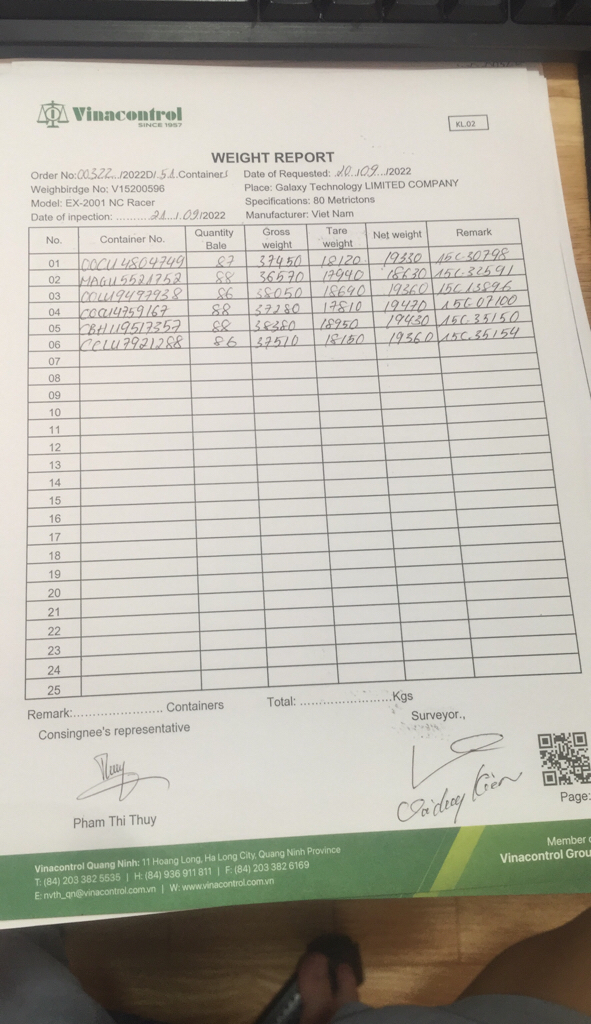 Vinacontrol
SINCE 1957
KL.02
WEIGHT REPORT
Order No:00322../2022D/.51.Containers Date of Requested: .20./09../2022
Weighbirdge No; V15200596 Place: Galaxy Technology LIMITED COMPANY
Model: EX-2001 NC Racer Specifications: 80 Metrictons
Date of inpection: .........21../.09/2022 Manufacturer: Viet Nam
No. Container No. Quantity Bale Gross weight Tare weight Net weight Remark
01 87 37450 18120 19330 15C.30798
02 88 36570 17940 18630 15C.32591
03 86 38050 18690 19360 15C13896
04 88 37280 17810 19470 15C.07100
05 88 38380 18950 19430 15C.35150
06 CCLU7921288 86 37510 18150 19360 15C.35154
07
08
09
10
11
12
13
14
15
16
17
18
19
20
21
22
23
24
25
Remark:...................... Containers Total: .......................Kgs
Consingnee's representative Surveyor.,
Thuy
Pham Thi Thuy
Page:
Vinacontrol Quang Ninh: 11 Hoang Long, Ha Long City, Quang Ninh Province
T: (84) 203 382 5535 | H: (84) 936 911 811 | F: (84) 203 382 6169
E: nvth_qn@vinacontrol.com.vn | W: www.vinacontrol.com.vn
Member
Vinacontrol Grou